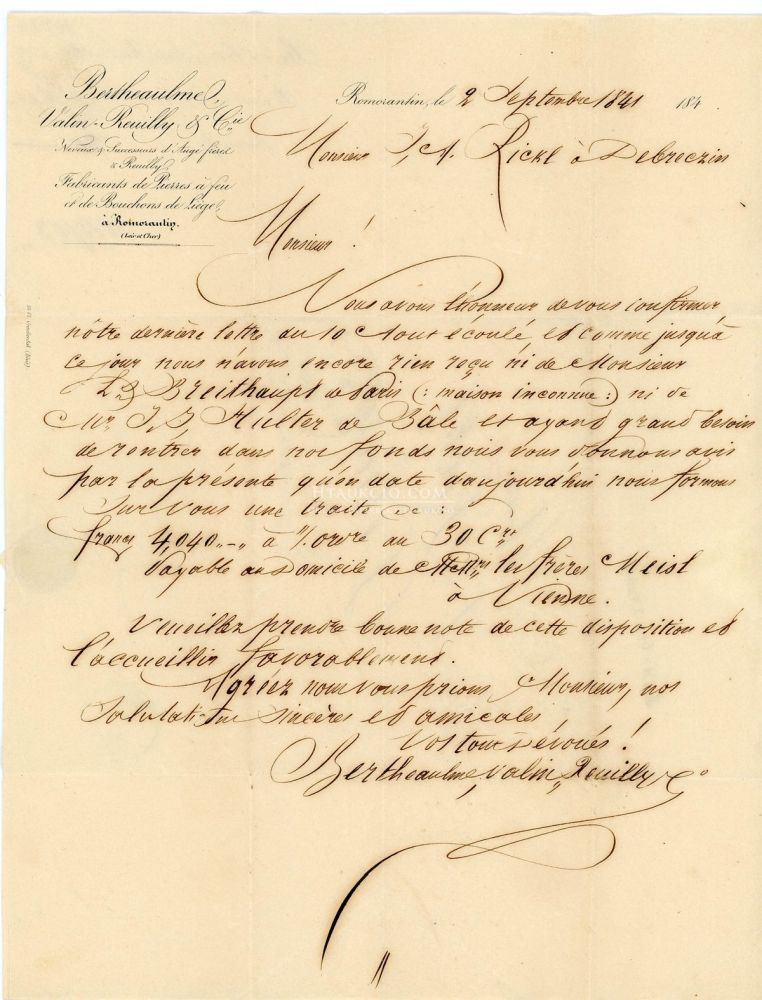 Bertheaulme,
Valin-Reuilly & Cie
Neveux & Successeurs d'Augé frères
& Reuilly
Fabricants de Pierres à feu
et de Bouchons de Liège,
à Romorantin.
(Loir et Cher)
Romorantin, le 2 Septembre 1841 184
Monsieur J. A. Rickl à Debreczin
Monsieur !
Nous avons l'honneur de vous confirmer
nôtre dernière lettre du 10 Aout écoulé, et comme jusqu'à
ce jour nous n'avons encore rien reçu ni de Monsieur
Breithaupt de Paris (: maison inconnue :) ni de
Mr J. J. Hulter de Bâle et ayant grand besoin
de rentrer dans nos fonds nous vous donnons avis
par la présente qu'en date d'aujourd'hui nous formons
sur vous une traite de :
francs 4,040.-„ à n/. ordre au 30 Crt
Payable au Domicile de Messrs les frères Meisl
à Vienne.
Veuillez prendre bonne note de cette disposition et
l'accueillir favorablement.
Agréez nous vous prions, Monsieur, nos
salutations sincères et amicales,
Vos tous dévoués !
Bertheaulme, Valin, Reuilly & Co
HTAUKCIO.COM